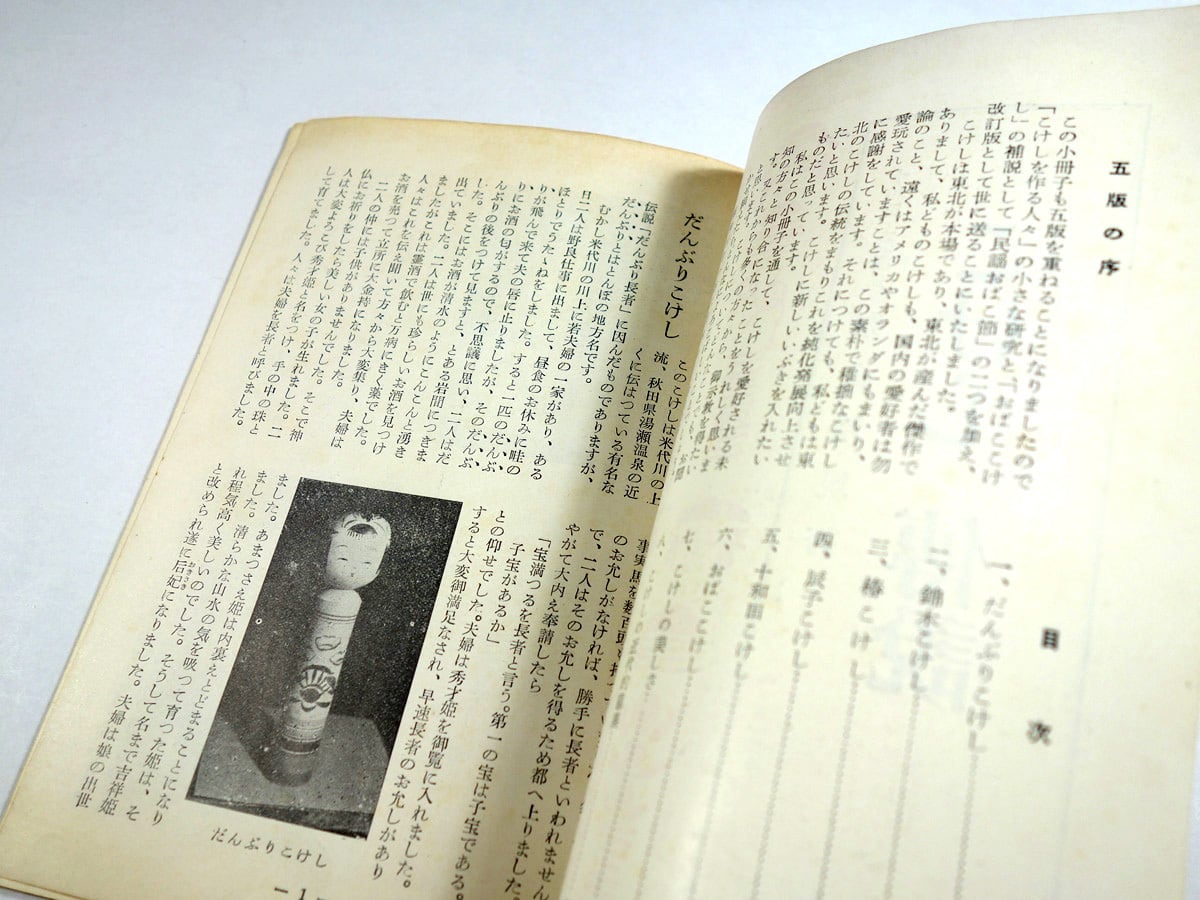 五版の序
この小冊子も五版を重ねることになりましたので
「こけしを作る人々」の小さな研究と、「おばこここけ
し」の補説として「民謡おばこ節」の二つを加え、
改訂版として世に送ることにいたしました。
こけしは東北が本場であり、東北が産んだ傑作で
ありまして、私どものこけしも、国内の愛好者は勿
論のこと、遠くはアメリカやオランダにもまいり、
愛玩されていますことは、この素朴で稚拙なこけし
に感謝をしています。それにつけても、私どもは東
北のこけしの伝統をまもりこれを純化発展向上させ
たいと思います。こけしに新しいいぶきを入れたい
ものだと思っています。
私はこの小冊子を通して、こけしを愛好される未
知の方々と知り合になったことをうれしく思いま
す。
目次
一、だんぶりこけし
二、錦木こけし
三、椿こけし
四、辰子こけし
五、十和田こけし
六、おばここけし
七、こけしの美しさ
だんぶりこけし
このこけしは米代川の上
流、秋田県湯瀬温泉の近
くに伝はつている有名な
伝説「だんぶり長者」に因んだものでありますが、
だんぶりとはとんぼの地方名です。
むかし米代川の川上に若夫婦の一家があり、ある
日二人は野良仕事に出まして、昼食のお休みに畦の
ほとりでうたゝねをしました。すると一匹のだんぶ
りが飛んで来て夫の唇に止りましたが、そのだんぶ
りにお酒の匂がするので、不思議に思い、二人はだ
んぶりの後をつけて見ますと、とある岩間につきま
した。そこにはお酒が清水のようにこんこんと湧き
出ていました。二人は世にも珍らしいお酒を見つけ
ましたがこれは霊酒で飲むと万病にきく薬でした。
人々はこれを伝え聞いて方々から大変集り、夫婦は
お酒を売つて立所に大金持になりました。
二人の仲には子供がありませんでした。そこで神
仏にお祈りをしたら美しい女の子が生れました。二
人は大変よろこび秀才姫と名をつけ、手の中の珠と
して育てました。人々は夫婦を長者と呼びました。
のお允しがなければ、勝手に長者といわれません
で、二人はそのお允しを得るため都へ上りました。
やがて大内え奉請したら
「宝満つるを長者と言う。第一の宝は子宝である。
子宝があるか」
との仰せでした。夫婦は秀才姫を御覧に入れました。
すると大変御満足なされ、早速長者のお允しがあり
ました。あまつさえ姫は内裏えとどまることになり
ました。清らかな山水の気を吸つて育つた姫は、そ
れ程気高く美しいのでした。そうして名まで吉祥姫
と改められ遂に后妃になりました。夫婦は娘の出世
おきさき
だんぶりこけし